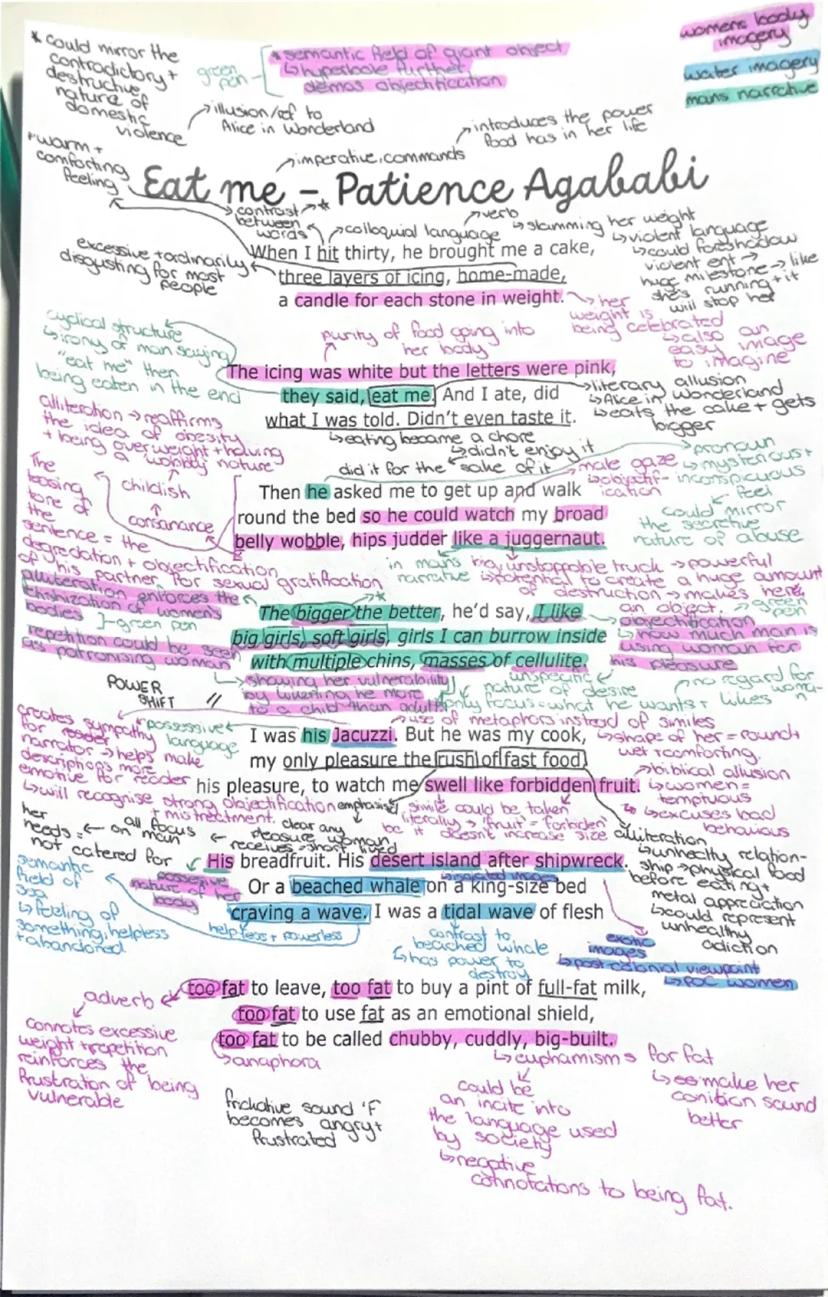 * could mirror the
contradictory +
destructive
nature of
domestic
violence
green
pen
* semantic field of giant object
↳ hyperbole further
demos objectification
womens body
imagery
water imagery
mans narrative
illusion/ref to
Alice in Wonderland
introduces the power
food has in her life
imperative, commands
* warm +
comforting
feeling
Eat me – Patience Agababi
contrast *
between
words
colloquial language
verb
slamming her weight
↳ violent language
↳ could foreshadow
violent ent → like
huge milestone →
she's running + it
will stop her
When I hit thirty, he brought me a cake,
three layers of icing, home-made,
a candle for each stone in weight.
excessive + ordinarily
disgusting for most
people
her
weight is
being celebrated
↳ also an
easy image
to imagine
purity of food going into
her body
cyclical structure
↳ irony of man saying
"eat me" then
being eaten in the end
The icing was white but the letters were pink,
they said, eat me. And I ate, did
what I was told. Didn't even taste it.
literary allusion
↳ Alice in Wonderland
↳ eats the cake + gets
bigger
↳ eating became a chore
↳ didn't enjoy it
did it for the sake of it
alliteration → reaffirms
the idea of obesity
+ being overweight + having
a wobbly nature
childish
consonance
The
teasing
tone of
the
sentence = the
degredation + objectification
of his partner for sexual gratification
male gaze
↳ objectif-
ication
pronoun
↳ mysterious +
inconspicuous
feel
could mirror
the secretive
nature of abuse
Then he asked me to get up and walk
round the bed so he could watch my broad
belly wobble, hips judder like a juggernaut.
in mans
narrative
big, unstoppable truck → powerful
↳ potential to create a huge amount
of destruction → makes her
an object.
green
pen
alliteration enforces the
fetishization of women's
bodies ]- green pen
repetition could be seen
as patronising woman
The bigger the better, he'd say, I like
big girls, soft girls, girls I can burrow inside
with multiple chins, masses of cellulite.
objectification
↳ how much man is
using woman for
his pleasure
↳ showing her vulnerability
by likening he more
to a child than adult
unspecific
nature of desire
only focus = what he wants + likes
no regard for
woman
POWER
SHIFT
creates sympathy
for reader
narrator → helps make
descriptions more
emotive for reader
↳ will recognise strong objectification
+ mistreatment.
possessive
language
use of metaphors instead of similes
I was his Jacuzzi. But he was my cook,
my only pleasure the rush of fast food,
his pleasure, to watch me swell like forbidden fruit.
↳ shape of her = round +
wet + comforting.
↳ biblical allusion
↳ women =
temptuous
↳ excuses bad
behavious
emphasis
simile could be taken
literally → 'fruit' = 'forbidden'
bc it doesn't increase size
her
needs =
not catered for
all focus
on man
clear any
pleasure woman
receives = short lived
His breadfruit. His desert island after shipwreck.
Or a beached whale on a king-size bed
craving a wave. I was a tidal wave of flesh
possessive
nature of her
body
isolated images
semantic
field of
sea
↳ feeling of
something, helpless
+ abandoned
helpless + powerless
contrast to
beached whale
↳ has power to
destroy
alliteration
↳ unhealthy relation-
ship → physical food
before eating +
metal appreciation
↳ could represent
unhealthy
adiction
exotic
images
↳ post-colonial viewpoint
↳ POC women
too fat to leave, too fat to buy a pint of full-fat milk,
too fat to use fat as an emotional shield,
too fat to be called chubby, cuddly, big-built.
adverb
connotes excessive
weight + repetition
reinforces the
frustration of being
vulnerable
↳ anaphora
fricative sound 'F'
becomes angry +
frustrated
↳ euphamisms for fat
could be
an incite into
the language used
by society
↳ negative
connotations to being fat.
make her
conition sound
better